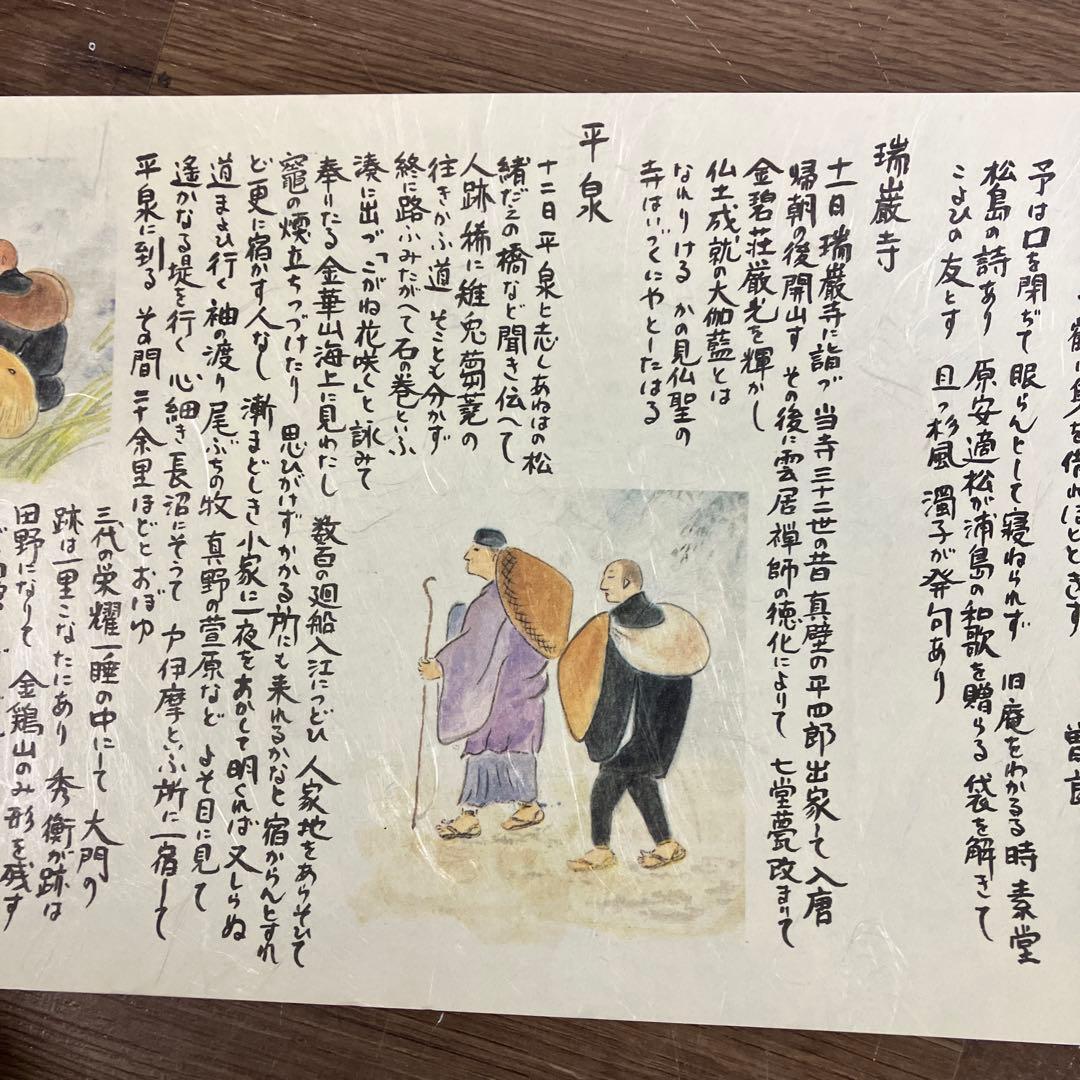 鶴に身を借れほとときす　曽良
予は口を閉ぢて眠らんとして寝ねられず　旧庵をわかるる時　素堂
松島の詩あり　原安適松が浦島の和歌を贈らる　袋を解きて
こよひの友とす　且つ杉風　濁子が発句あり
瑞巌寺
十一日　瑞巌寺に詣づ　当寺三十二世の昔　真壁の平四郎出家して入唐
帰朝の後開山す　その後に雲居禅師の徳化によりて　七堂甍改まりて
金碧荘厳光を輝かし
仏土成就の大伽藍とは
なれりける　かの見仏聖の
寺はいづくにやとしたはる
平泉
十二日　平泉と志しあねはの松
緒だえの橋など聞き伝へて
人跡稀に雉兎蒭蕘の
往きかふ道　そことも分かず
終に路ふみたがへて石の巻といふ
湊に出づ「こがね花咲く」と詠みて
奉りたる金華山海上に見わたし　数百の廻船入江につどひ　人家地をあらそひて
竈の煙立ちつづけたり　思ひがけずかかる所にも来れるかなと宿からんとすれ
ど更に宿かす人なし　漸まどしき小家に一夜をあかして明くれば又しらぬ
道まよひ行く　袖の渡り　尾ぶちの牧　真野の萱原など　よそ目に見て
遙かなる堤を行く　心細き長沼にそうて　戸伊摩といふ所に一宿して
平泉に到る　その間二十余里ほどとおぼゆ
三代の栄耀一睡の中にして　大門の
跡は一里こなたにあり　秀衡が跡は
田野になりて　金鶏山のみ形を残す